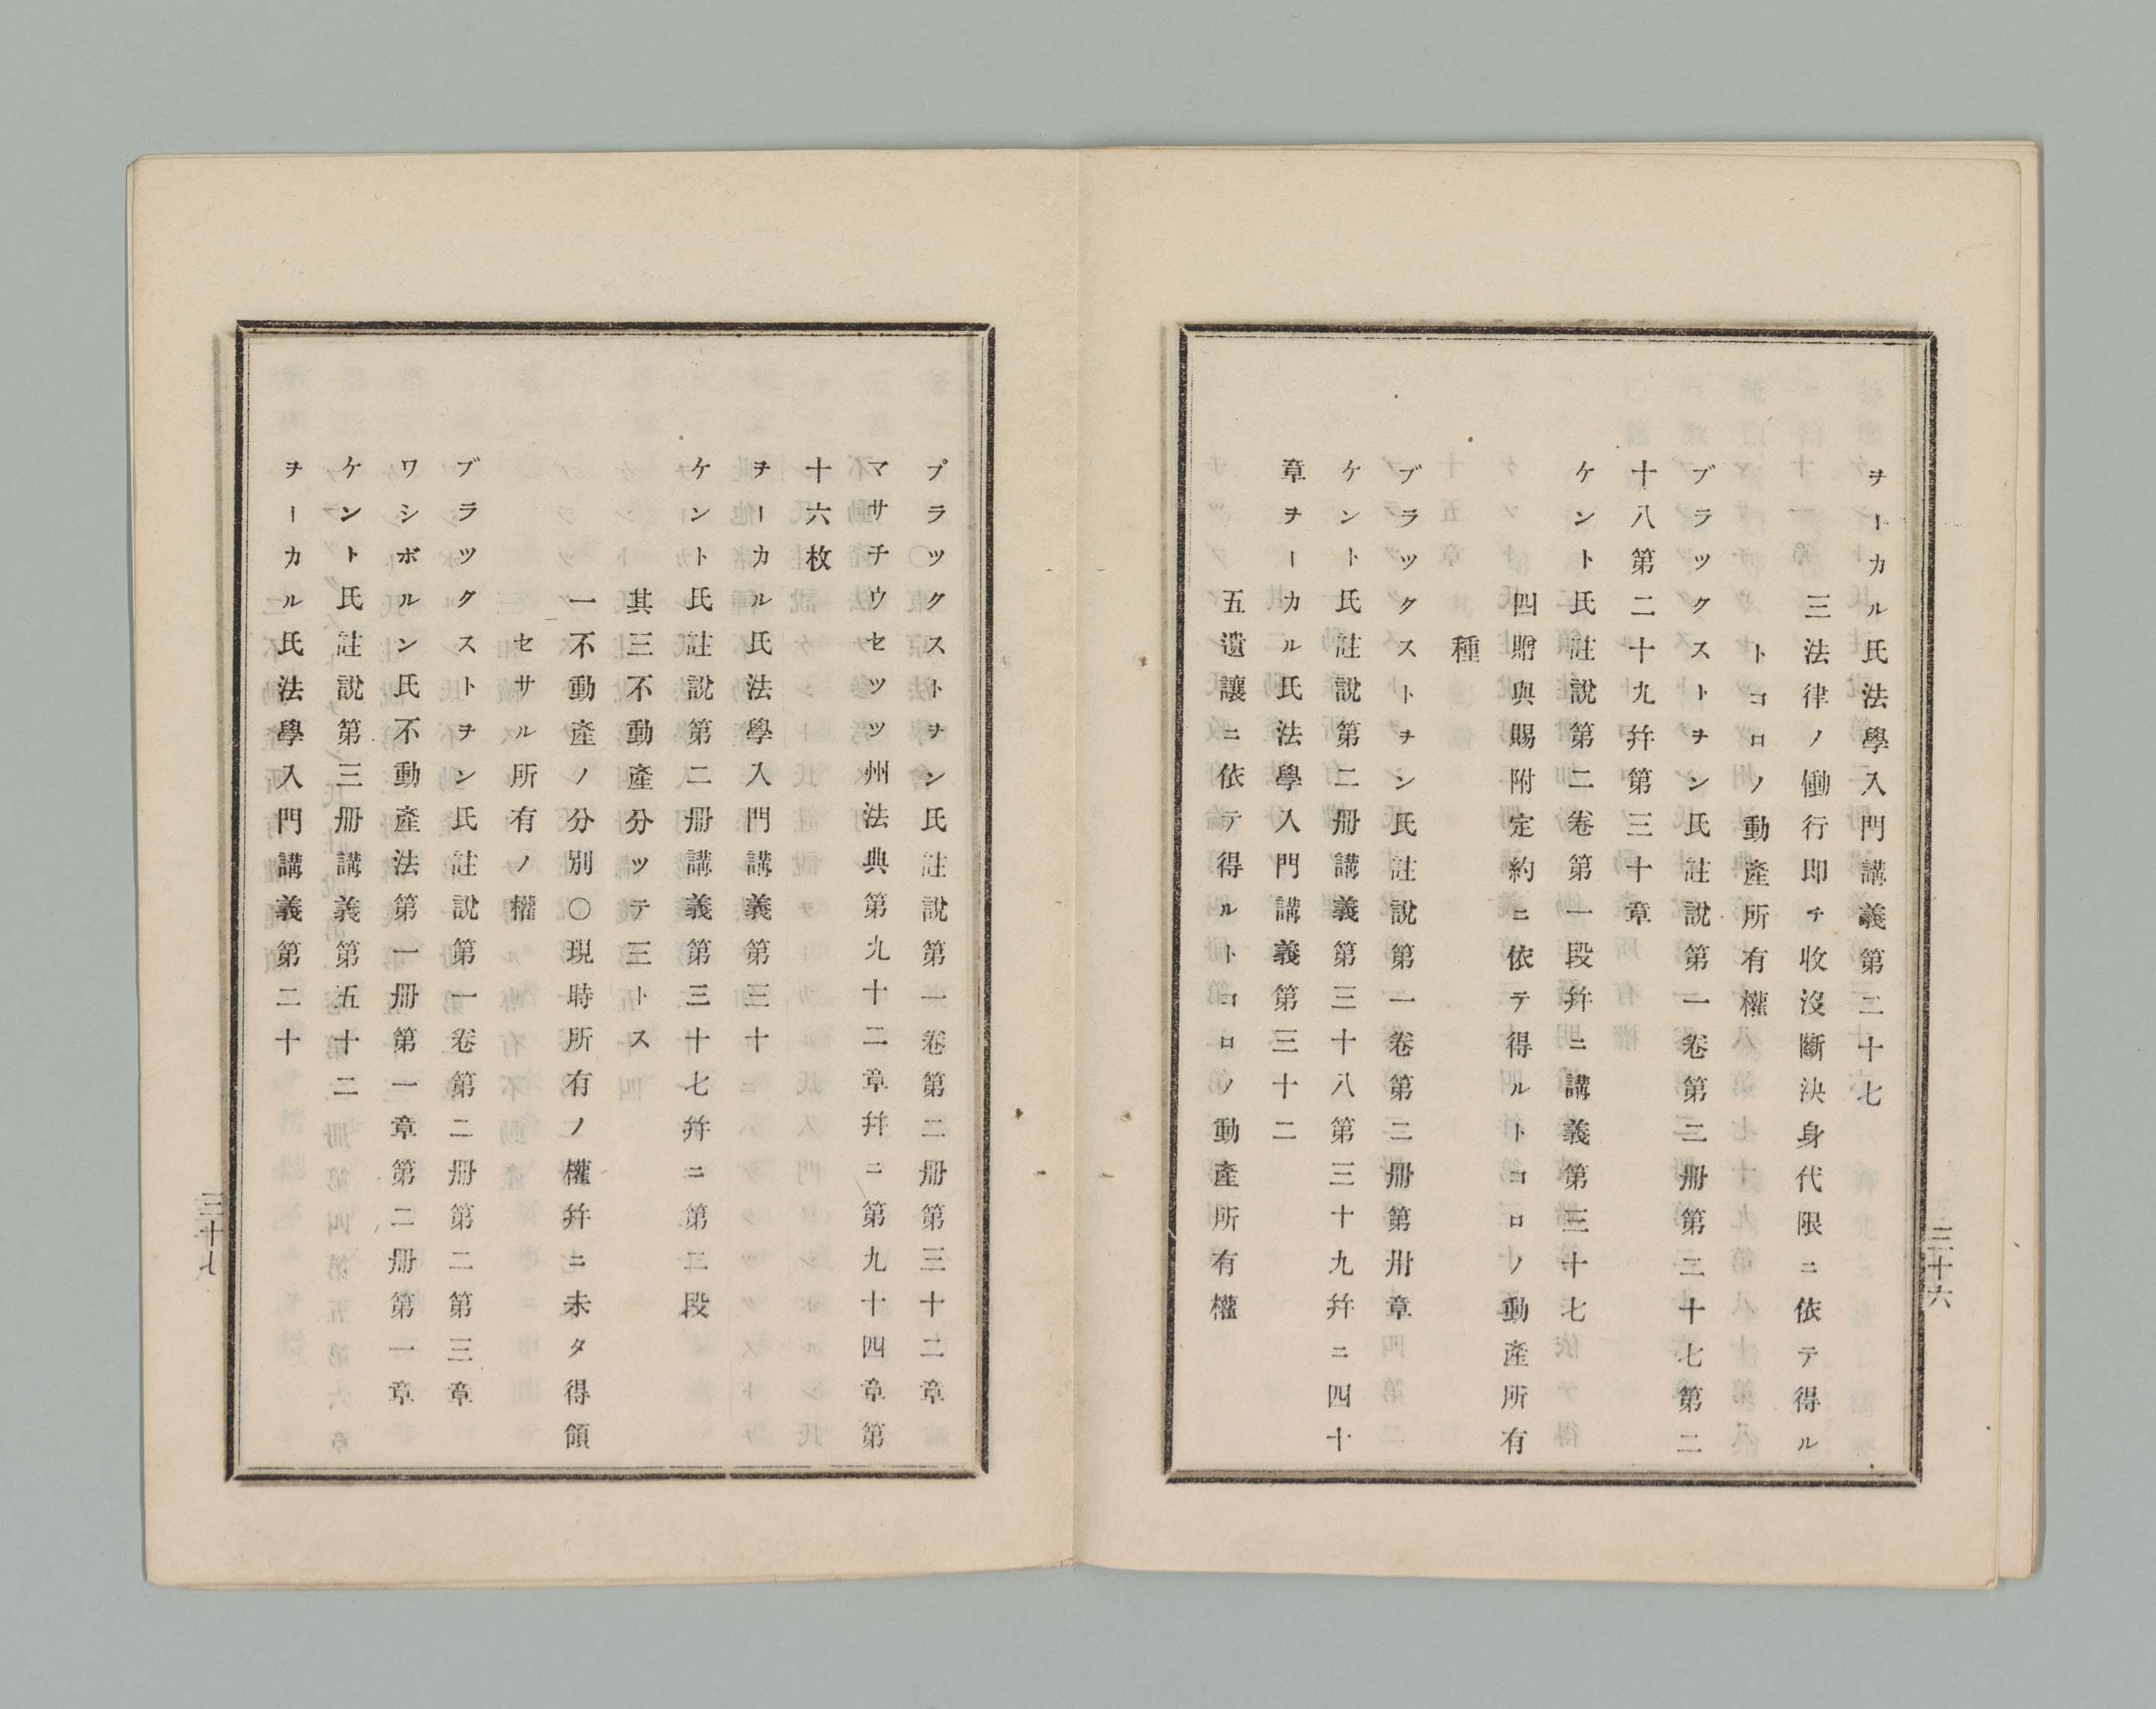 ヲーカル氏法學入門講義第二十七
三法律ノ働行即チ收沒斷決身代限ニ依テ得ル
トコロノ動產所有權
ブラックストヲン氏註說第一卷第二册第二十七第二
十八第二十九幷第三十章
ケント氏註說第二卷第一段幷ニ講義第三十七
四贈與賜附定約ニ依テ得ルトコロノ動產所有
種
ブラックストヲン氏註說第一卷第二册第卅章
ケント氏註說第二册講義第三十八第三十九幷ニ四十
章ヲーカル氏法學入門講義第三十二
五遺讓ニ依テ得ルトコロノ動產所有權
三十六
プラックストヲン氏註說第一卷第二册第三十二章
マサチウセッツ州法典第九十二章幷ニ第九十四章第
十六枚
ヲーカル氏法學入門講義第三十
ケント氏註說第二册講義第三十七幷ニ第二段
其三不動產分ッテ三トス
一不動產ノ分別〇現時所有ノ權幷ニ未タ得領
セサル所有ノ權
ブラックストヲン氏註說第一卷第二册第二第三章
ワシボルン氏不動產法第一册第一章第二册第一章
ケント氏註說第三册講義第五十二
ヲーカル氏法學入門講義第二十
三十七